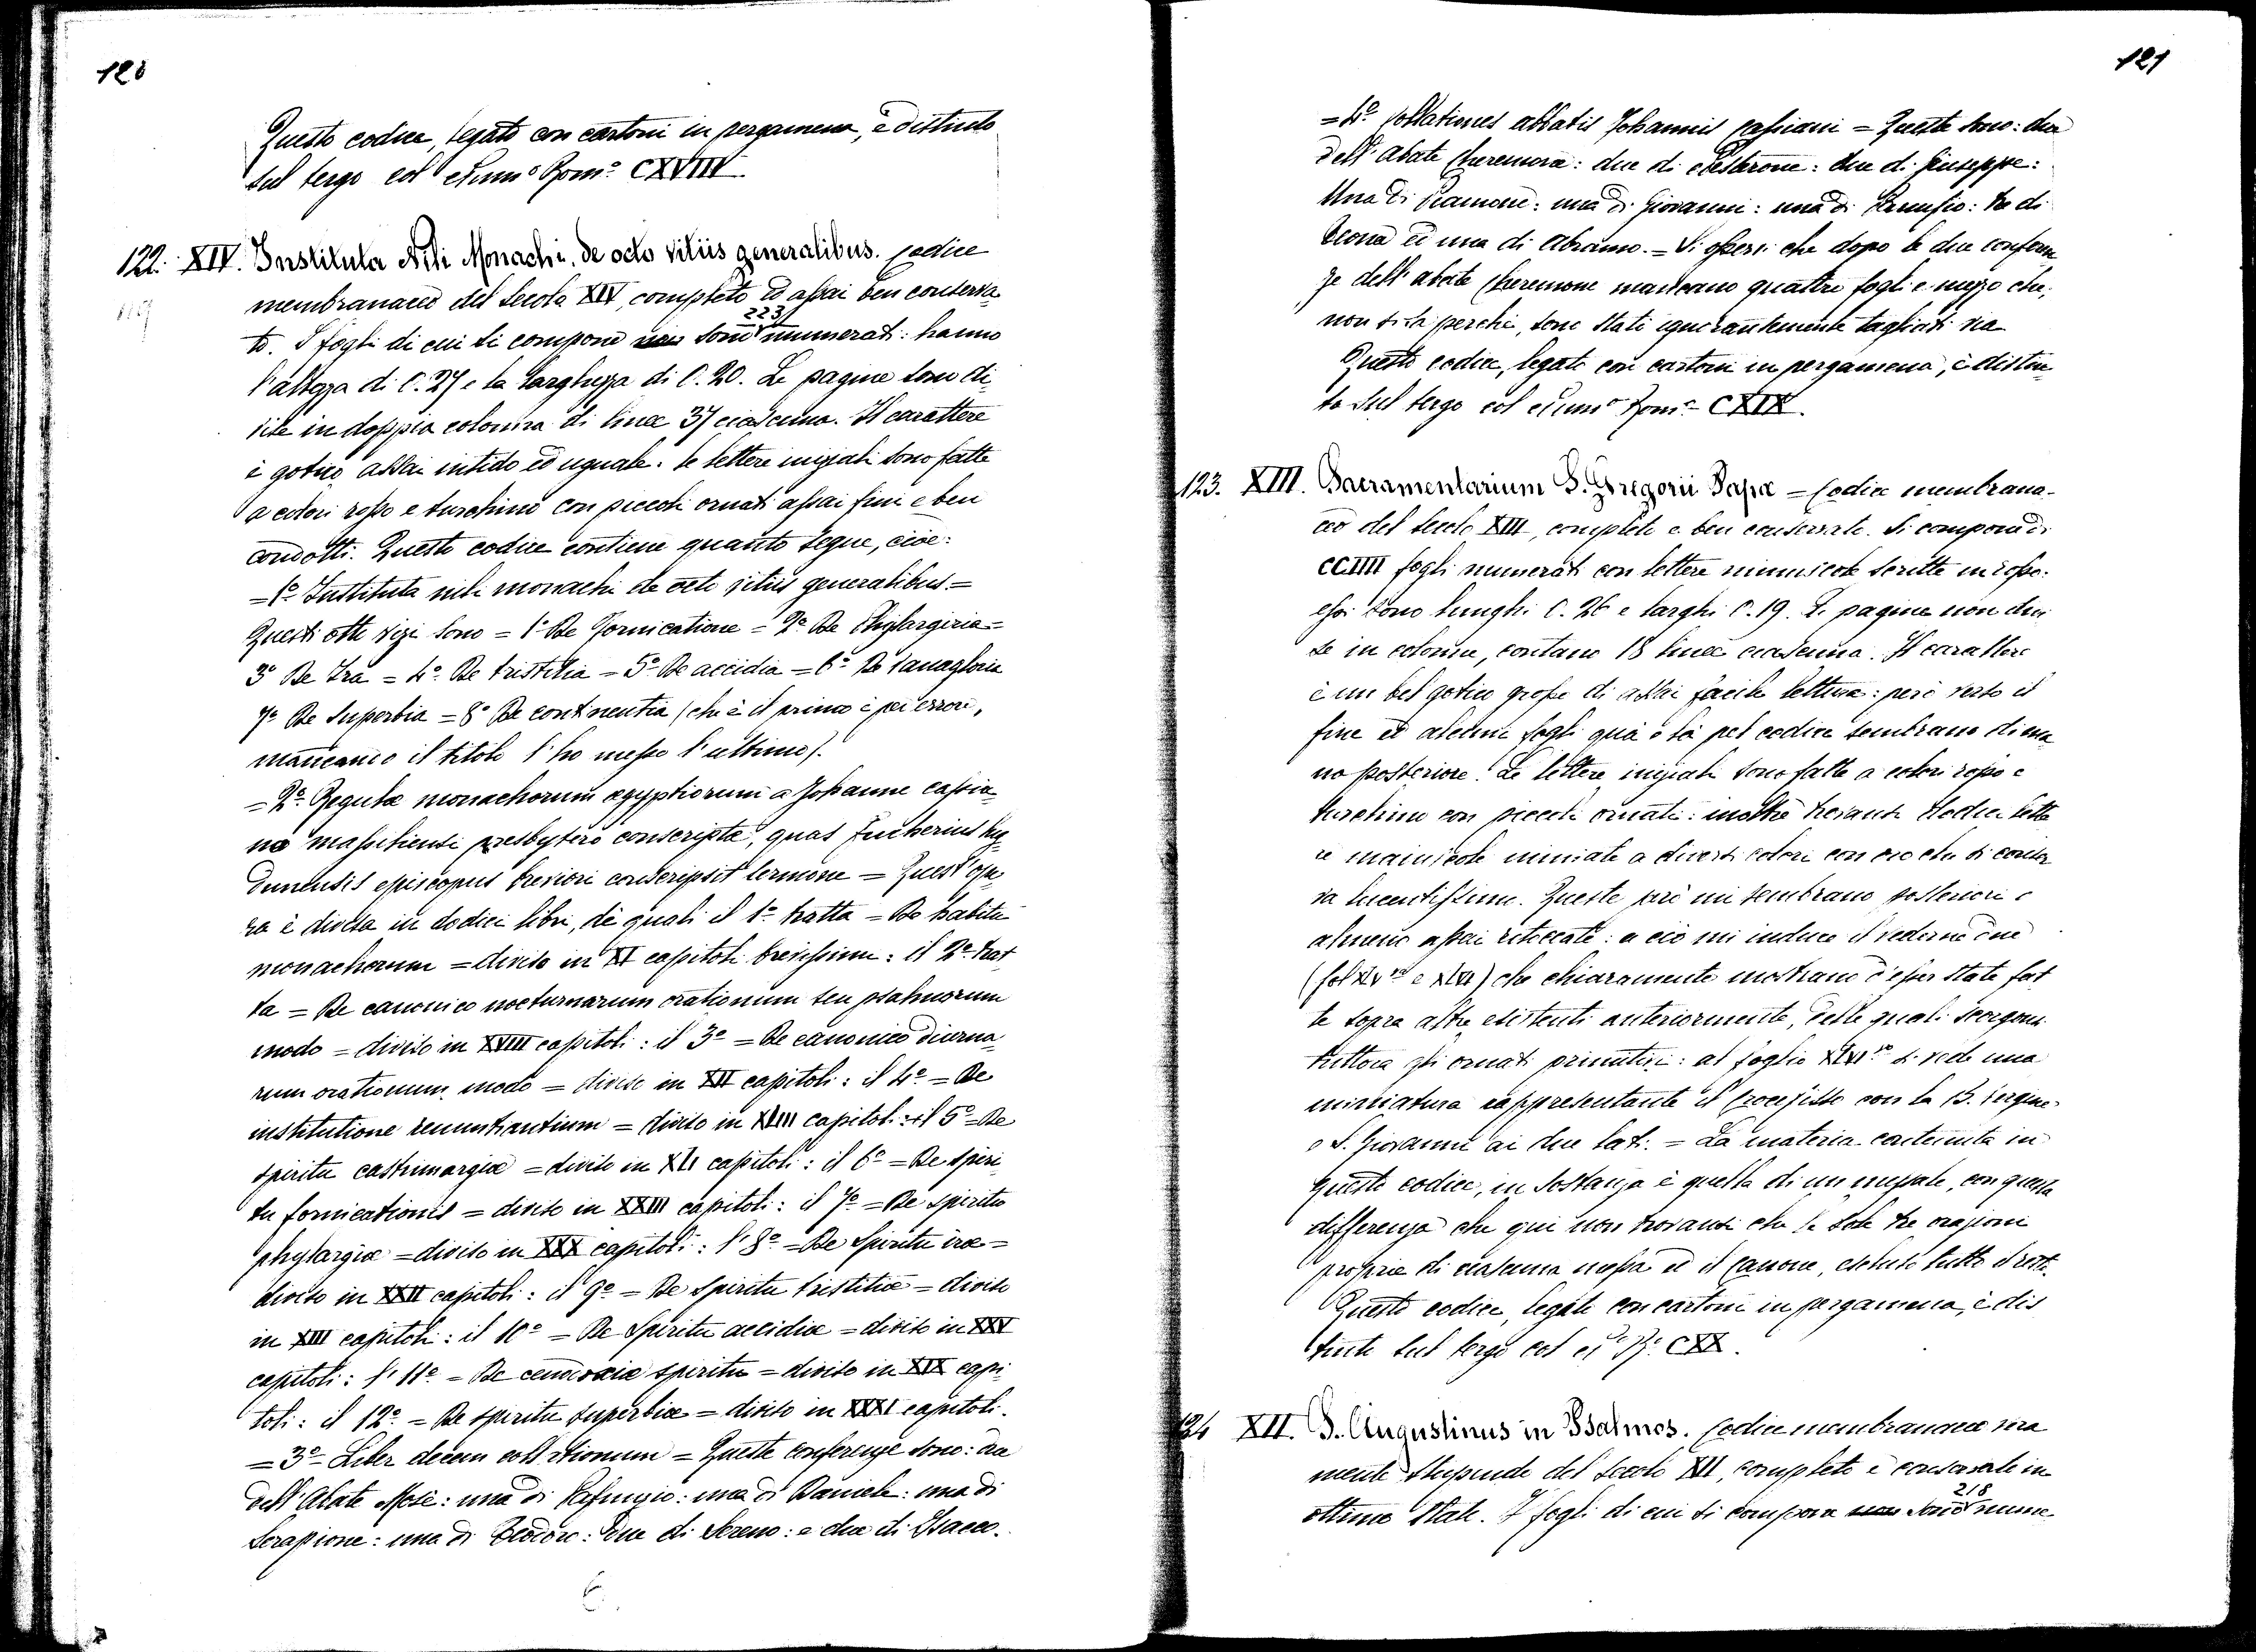 120
Questo codice, legato con cartoni in pergamena, è distinto
sul tergo col Num.º Rom.º CXVIII.
122. XIV. Instituta Nili Monachi, de octo vitiis generalibus. Codice
membranaceo del Secolo XIV, completo ed assai ben conserva-
to. I fogli di cui si compone non sono 223 numerati: hanno
l'altezza di C. 27 e la larghezza di C. 20. Le pagine sono di-
vise in doppia colonna di linee 37 ciascuna. Il carattere
è gotico assai nitido ed uguale. Le lettere iniziali sono fatte
a colori rosso e turchino con piccoli ornati assai fini e ben
condotti. Questo codice contiene quanto segue, cioè:
= 1º Instituta nili monachi de octo vitiis generalibus. =
Questi otto vizi sono = 1º De Fornicatione = 2º De Phylargiria =
3º De Ira = 4º De tristitia = 5º De accidia = 6º De vanagloria
7º De Superbia = 8º De continentia (che è il primo e per errore,
mancando il titolo l'ho messo l'ultimo).
= 2º Regulæ monachorum ægyptiorum a Johanne cassia-
no massiliensi presbytero conscriptæ, quas Eucherius lug-
dunensis episcopus breviori conscripsit sermone = Quest'ope-
ra è divisa in dodici libri, dè quali il 1º tratta = De habitu
monachorum = diviso in XI capitoli brevissimi: il 2º trat-
ta = De canonico nocturnarum orationum seu psalmorum
modo = diviso in XVIII capitoli: il 3º = De canonico diurna-
rum orationum modo = diviso in XII capitoli: il 4º = De
institutione renuntiantium = diviso in XLIII capitoli: il 5º = De
spiritu castrimargiæ = diviso in XLI capitoli: il 6º = De spiri-
tu fornicationis = diviso in XXIII capitoli: il 7º = De spiritu
phylargiæ = diviso in XXX capitoli: l'8º = De Spiritu iræ =
diviso in XXII capitoli: il 9º = De Spiritu tristitiæ = diviso
in XIII capitoli: il 10º = De Spiritu accidiæ = diviso in XXV
capitoli: l'11º = De cenodoxiæ spiritu = diviso in XIX capi-
toli: il 12º = De spiritu superbiæ = diviso in XXXI capitoli.
= 3º Liber decem collationum = Queste conferenze sono: due
dell'Abate Mosè: una di Pafnuzio: una di Daniele: una di
Serapione: una di Teodoro: due di Sereno: e due di Isacco.
121
= 4º Collationes abbatis Johannis Cassiani = Queste sono: due
dell'Abate Cheremone: due di Nesterone: due di Giuseppe:
Una di Piamone: una di Giovanni: una di Pinufio: tre di
Teona ed una di Abramo. = Si osservi che dopo le due conferen-
ze dell'abate Cheremone mancano quattro fogli e mezzo che,
non si sa perchè, sono stati ignorantemente tagliati via
Questo codice, legato con cartoni in pergamena, è distin-
to sul tergo col Num.º Rom.º CXIX.
123. XIII. Sacramentarium S. Gregorii Papæ = Codice membrana-
ceo del secolo XIII, completo e ben conservato. Si compone di
CCIIII fogli numerati con lettere minuscole scritte in rosso:
essi sono lunghi C. 26 e larghi C. 19. Le pagine non divi-
se in colonne, contano 18 linee ciascuna. Il carattere
è un bel gotico grosso di assai facile lettura: però verso il
fine ed alcuni fogli quà e là pel codice sembrano di ma-
no posteriore. Le lettere iniziali sono fatte a colori rosso e
turchino con piccoli ornati: inoltre trovansi dodici lette-
re maiuscole miniate a diversi colori con oro che si conser-
va lucentissimo. Queste però mi sembrano posteriori o
almeno assai ritoccate: a ciò mi induce il vederne due
(fol XLVro e XLVI) che chiaramente mostrano d'esser state fat-
te sopra altre esistenti anteriormente, delle quali scorgonsi
tuttora gli ornati primitivi: al foglio XLVIro si vede una
miniatura rappresentante il Crocefisso con la B. Vergine
e S. Giovanni ai due lati. = La materia contenuta in
questo codice, in sostanza è quella di un messale, con questa
differenza che qui non trovansi che le sole tre orazioni
proprie di ciascuna messa ed il Canone, escluso tutto il resto.
Questo codice, legato con cartoni in pergamena, è dis-
tinto sul tergo col Nº Rº CXX.
124 XII. S. Augustinus in Psalmos. Codice membranaceo vera-
mente stupendo del Secolo XII, completo e conservato in
ottimo stato. I fogli di cui si compone non sono 218 nume-